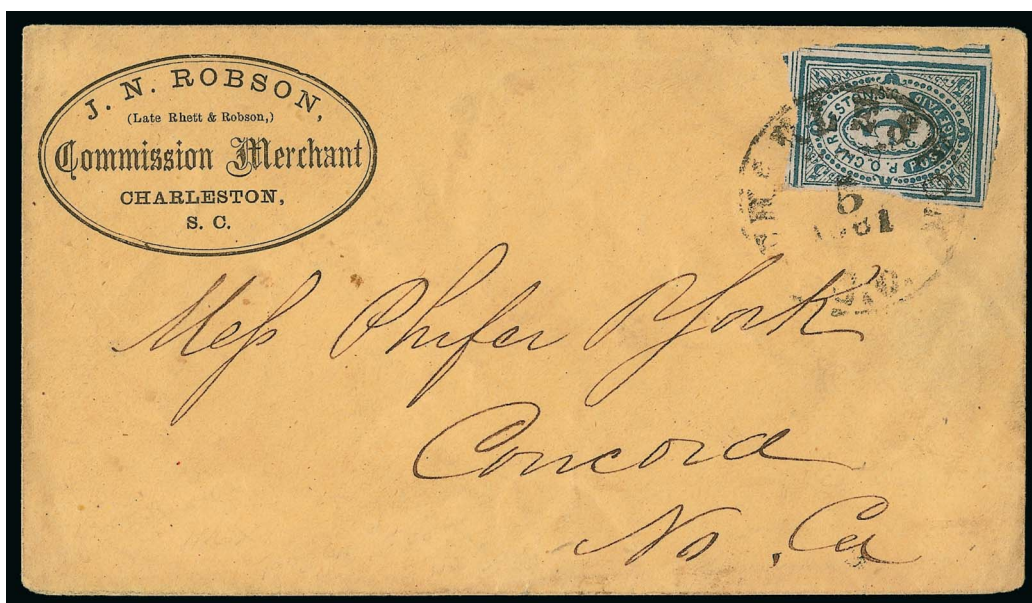 J. N. ROBSON,
(Late Rhett & Robson,)
Commission Merchant
CHARLESTON,
S. C.
P. O. CHARLESTON, S. C.
POSTAGE PAID
5
1861
Mess Phifer York
Concord
No. Ca